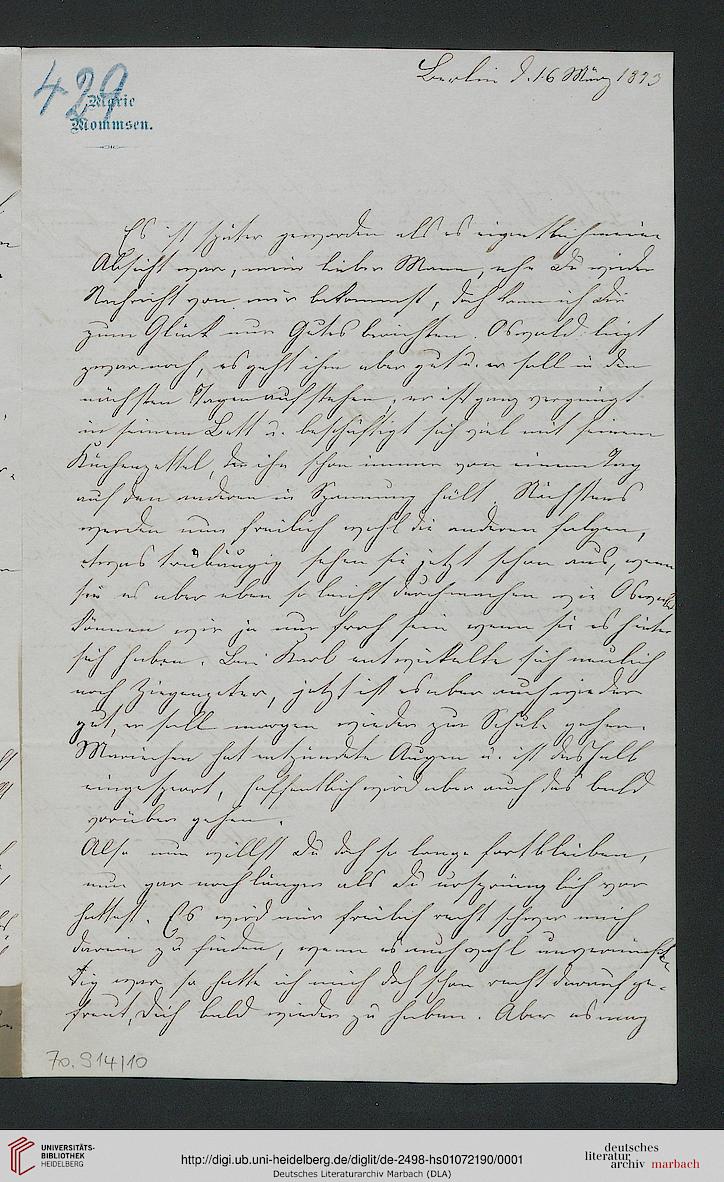 429
Marie
Mommsen.
Berlin d. 16 März 1873
Es ist später geworden als es eigentlich meine
Absicht war, mein lieber Mann, ehe Du wieder
Nachricht von mir bekommst, doch kann ich Dir
zum Glück nur Gutes berichten. Oswald liegt
zwar noch, es geht ihm aber gut u. er soll in den
nächsten Tagen aufstehen, er ist ganz vergnügt
in seinem Bett u. beschäftigt sich viel mit seinem
Küchenzettel, der ihn schon immer von einem Tag
auf den anderen in Spannung hält. Nächstens
werden nun freilich wohl die anderen folgen,
etwas trübäugig sehen sie jetzt schon aus, wenn
sie es aber eben so leicht durchmachen wie Oswald
können wir ja nur froh sein wenn sie es hinter
sich haben. Bei Karl entwickelte sich neulich
noch Ziegenpeter, jetzt ist es aber auch wieder
gut, er soll morgen wieder zur Schule gehen.
Mariechen hat entzündete Augen u. ist deshalb
eingesperrt, hoffentlich wird aber auch das bald
vorüber gehen.
Also nun willst Du doch so lange fortbleiben,
nun gar noch länger als Du ursprünglich vor
hattest. Es wird mir freilich recht schwer mich
darein zu finden, wenn es auch wohl unvernünf
tig war, so hatte ich mich doch schon recht darauf ge-
freut, Dich bald wieder zu haben. Aber es mag
70. 914/10
UNIVERSITÄTS-
BIBLIOTHEK
HEIDELBERG
http://digi.ub.uni-heidelberg.de/diglit/de-2498-hs01072190/0001
Deutsches Literaturarchiv Marbach (DLA)
deutsches
literatur
archiv marbach